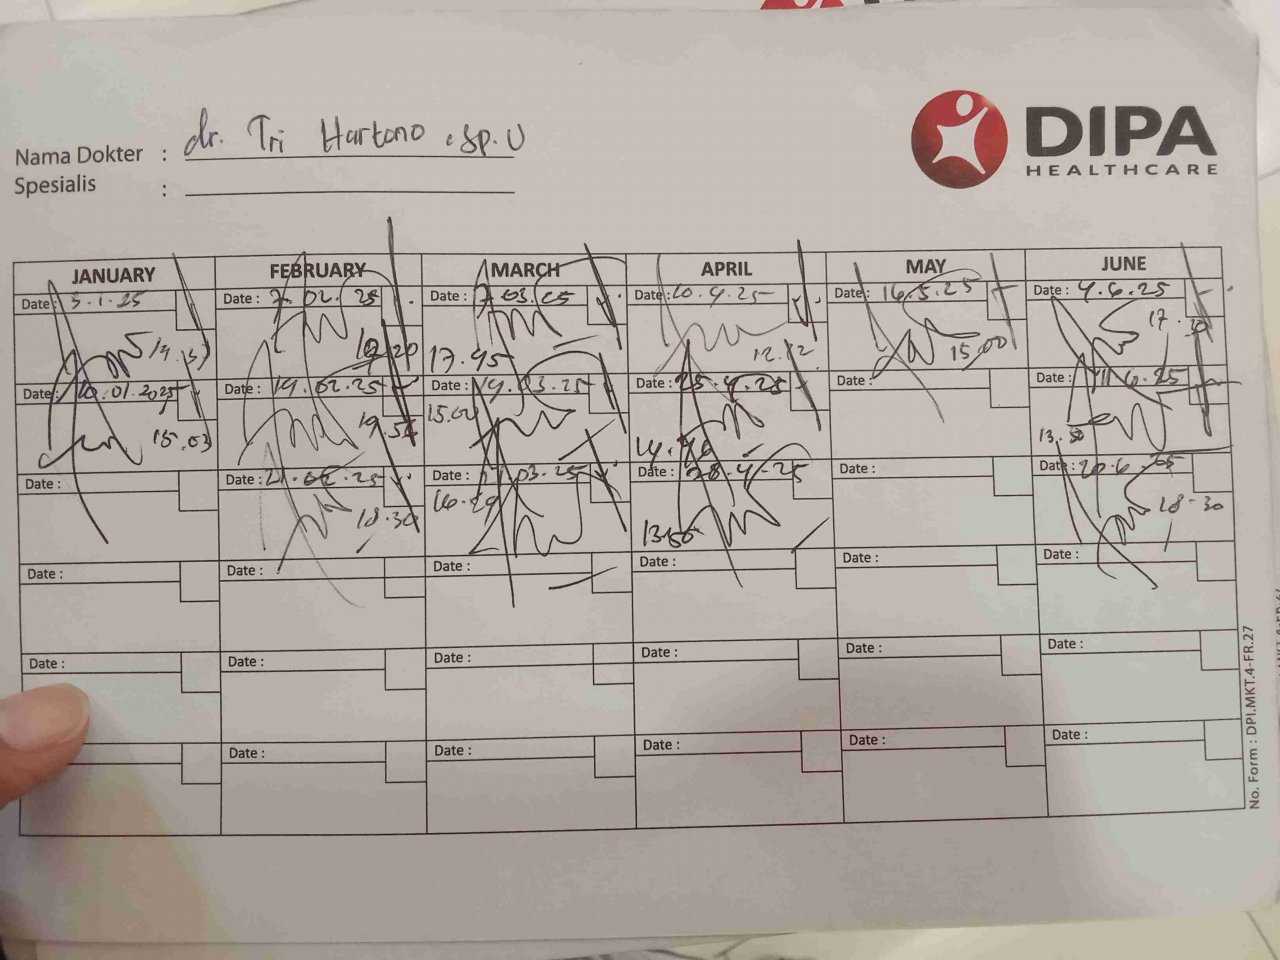 dr. Tri Hartono . Sp. U
Nama Dokter :
Spesialis :
DIPA
HEALTHCARE
JANUARY FEBRUARY MARCH APRIL MAY JUNE
Date : 3.1.25 Date : 7.02.25 Date : 7.03.25 Date : 10.4.25 Date : 16.5.25 Date : 4.6.25
17.45 12.12 15.00
Date : 10.01.2025 Date : 19.02.25 Date : 19.03.25 Date : 25.4.25 Date : Date : 11.6.25
15.03
Date : Date : 21.02.25 Date : 21.03.25 Date : 28.4.25 Date : Date : 20.6.25
18.30 18-30
Date : Date : Date : Date : Date : Date :
Date : Date : Date : Date : Date : Date :
Date : Date : Date : Date : Date :
No. Form : DPI.MKT.4-FR.27